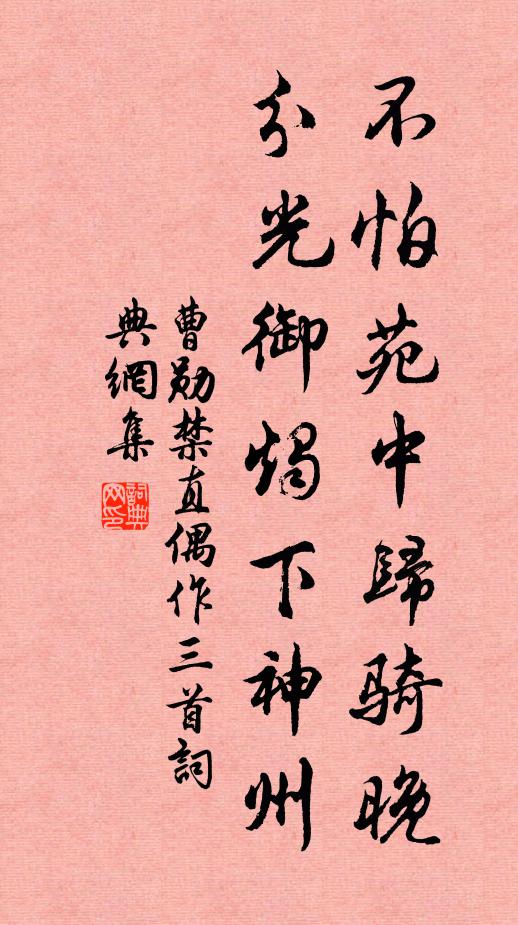 不怕苑中歸騎晚
分光御燭下神州
曹勛禁直偶作三首詞
典網集
詞典網印